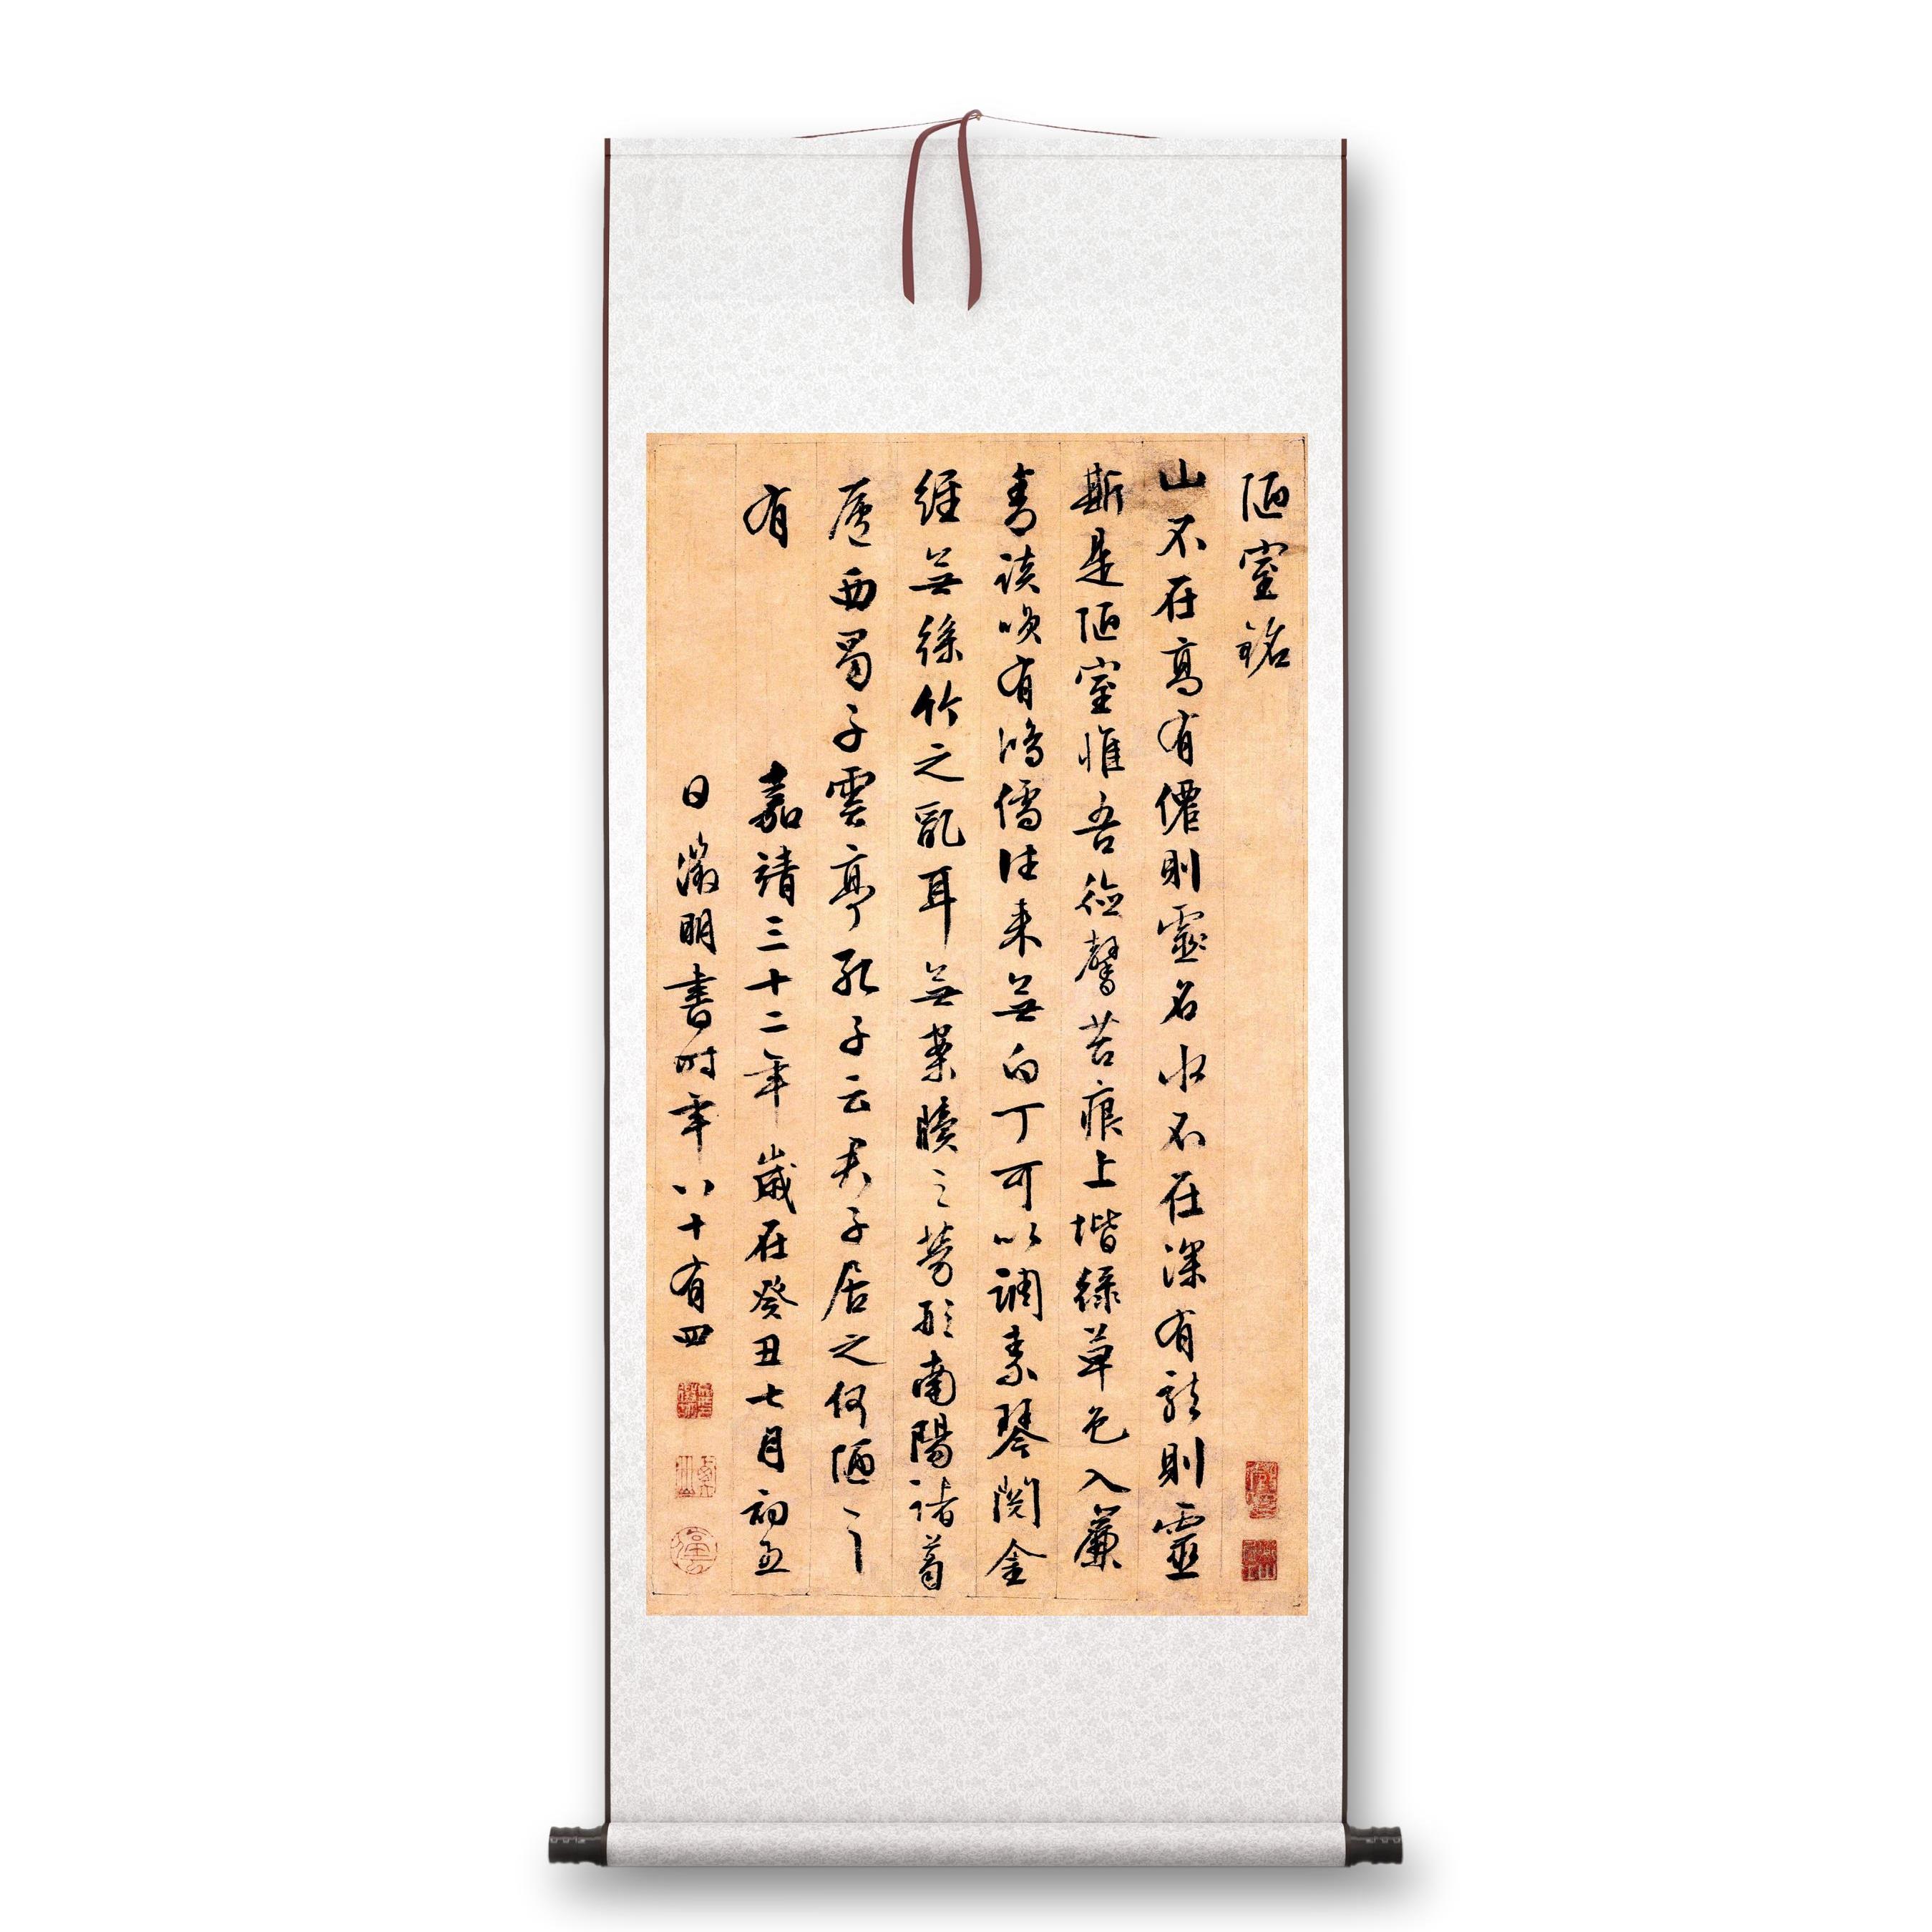 陋室銘
山不在高有僊則靈名水不在深有龍則靈
斯是陋室惟吾德馨苔痕上堦綠草色入簾
青談唉有鴻儒往來無白丁可以調素琴閱金
經無絲竹之亂耳無案牘之勞形南陽諸葛
廬西蜀子雲亭孔子云君子居之何陋之
有 嘉靖三十二年歲在癸丑七月初五
日徵明書時年八十有四